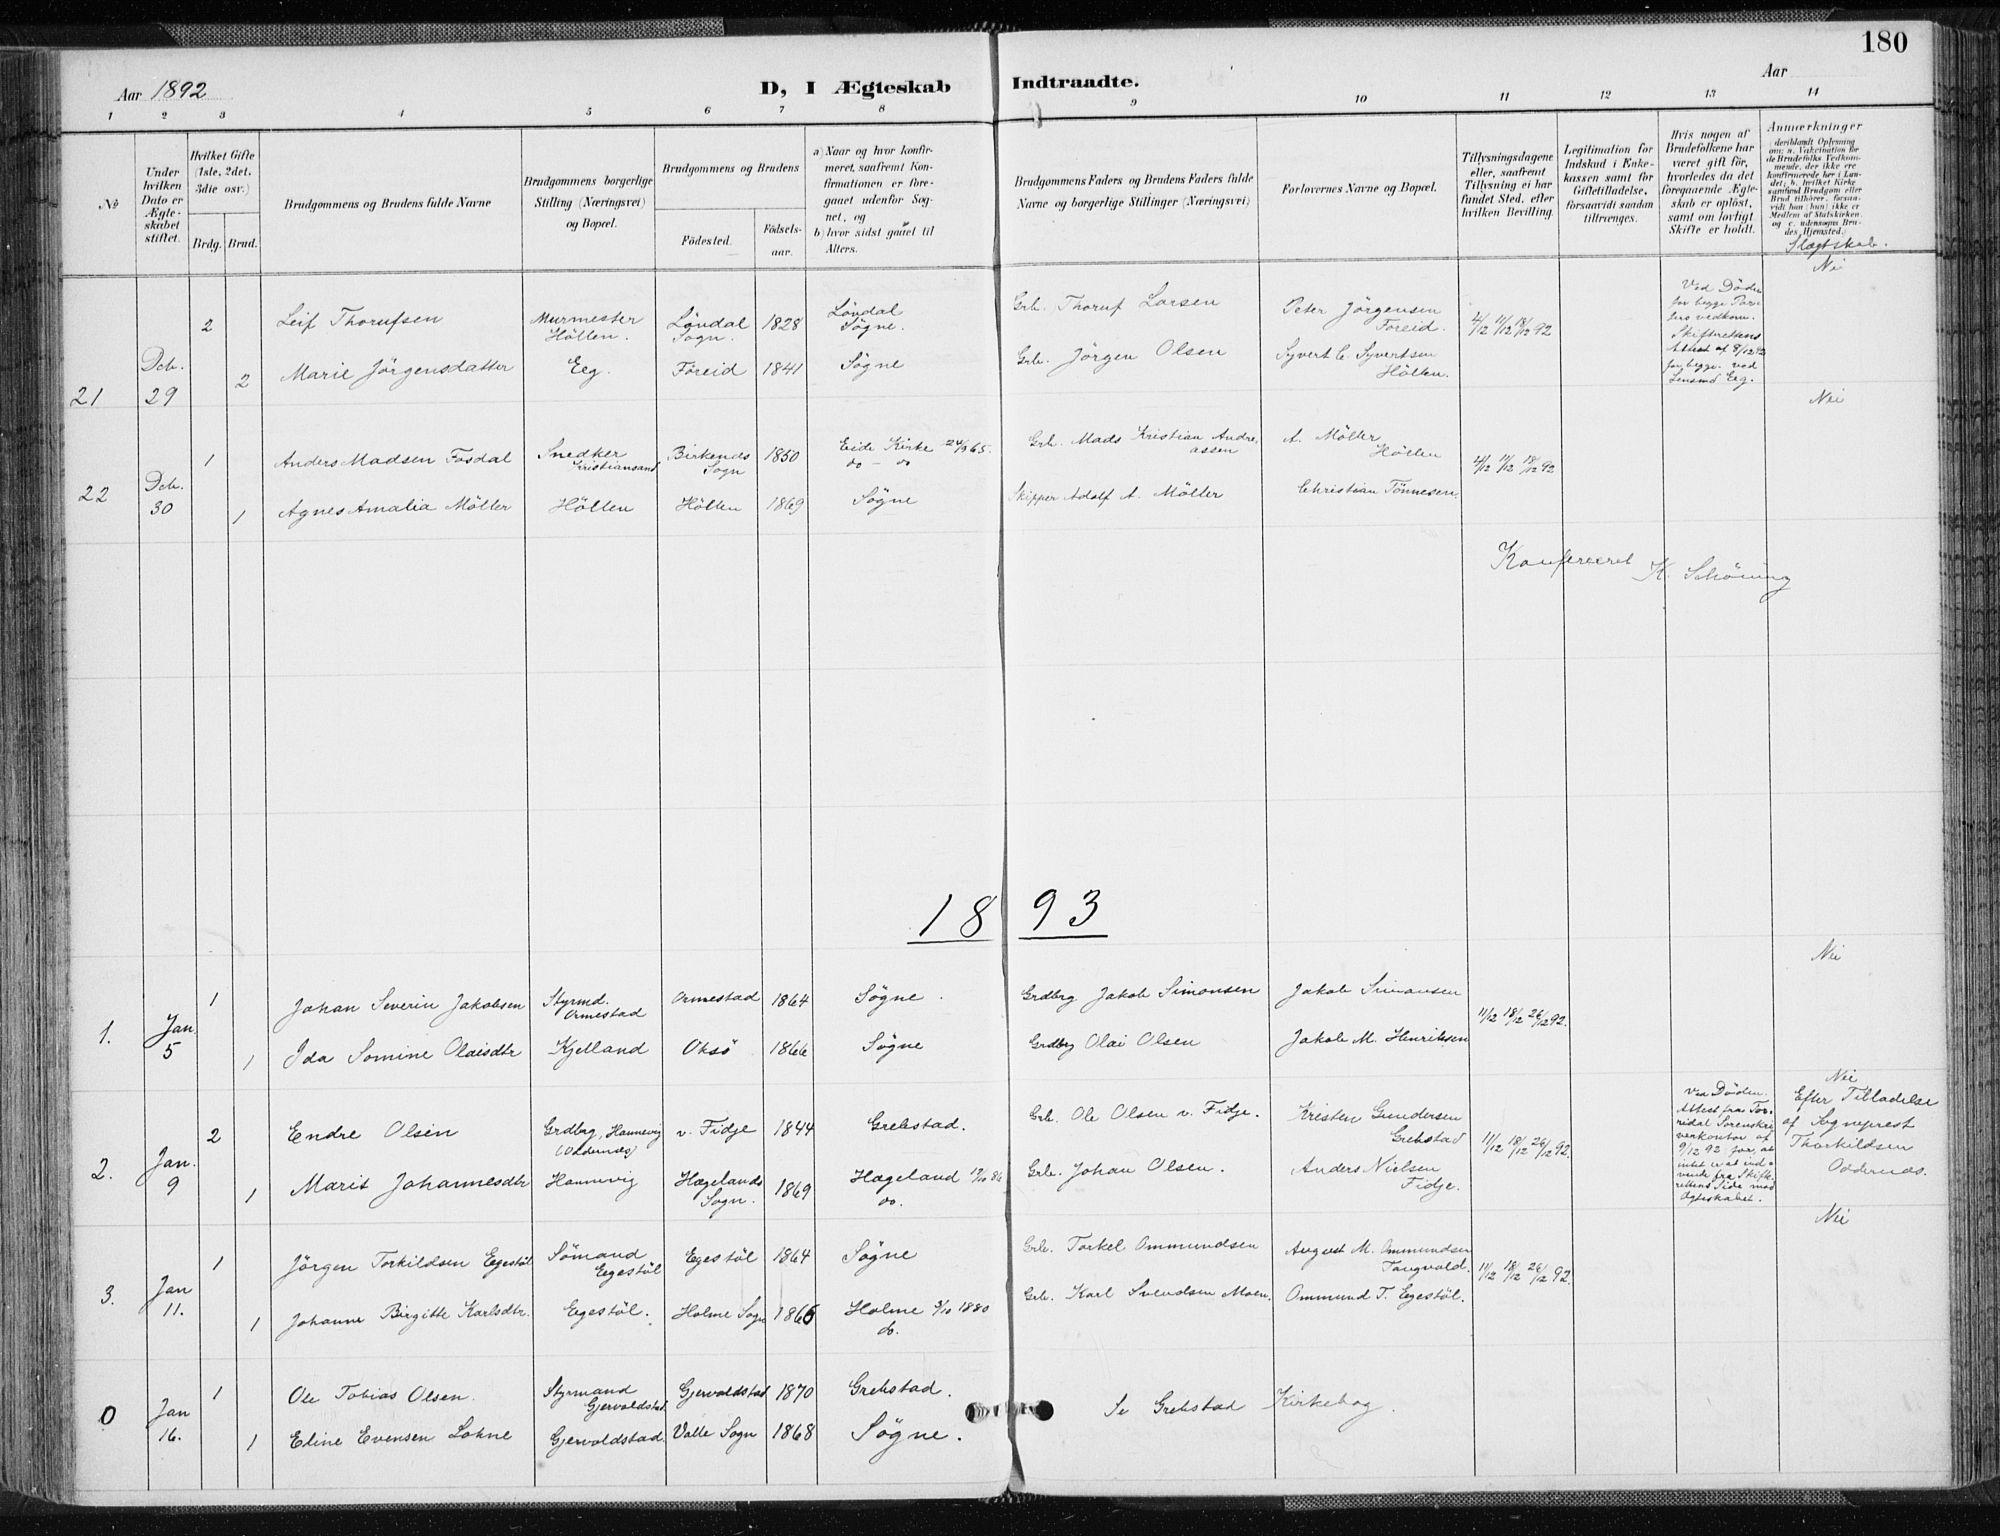 180
Aar 1892
D, I Ægteskab Indtraadte.
Aar
1 2 3 4 5 6 7 8 9 10 11 12 13 14
№
Under hvilken Dato er Ægteskabet stiftet.
Hvilket Gifte (1ste, 2det, 3die osv.)
Brdg. Brud.
Brudgommens og Brudens fulde Navne
Brudgommens borgerlige Stilling (Næringsvei) og Bopæl.
Brudgommens og Brudens
Födested.
Födselsaar.
a) Naar og hvor konfirmeret, saafremt Konfirmationen er foregaaet udenfor Sognet, og
b) hvor sidst gaaet til Alters.
Brudgommens Faders og Brudens Faders fulde Navne og borgerlige Stillinger (Næringsvei)
Forlovernes Navne og Bopæl.
Tillysningsdagene eller, saafremt Tillysning ei har fundet Sted, efter hvilken Bevilling.
Legitimation for Indskud i Enkekassen samt for Giftetilladelse, forsaavidt saadan tiltrænges.
Hvis nogen af Brudefolkene har været gift før, hvorledes da det foregaaende Ægteskab er opløst, samt om lovligt Skifte er holdt.
Anmærkninger
deriblandt Oplysning om: a. Vakcination for de Brudefolks Vedkommende, der ikke ere konfirmerede her i Landet; b. hvilket Kirkesamfund Brudgom eller Brud tilhører, forsaavidt han (hun) ikke er Medlem af Statskirken, og c. udensogns Brudes Hjemsted.
Slægtskab.
21 Dcb. 29
2 Leif Thorufsen
Murmester Höllen.
Löndal Sogn. 1828
Löndal Søgne.
Grb. Thoruf Larsen
Peter Jörgensen Foreid.
4/12 11/12 18/12 92
Ved Döden for begge Parters vedkom. Skifterettens Attest af 8/12 92 for begge ved Lensmd Eeg.
Nei
2 Marie Jörgensdatter
Eeg. Föreid 1841 Søgne
Grb. Jörgen Olsen
Syvert C. Syvertsen Höllen.
22 Dcb. 30
1 Anders Madsen Fosdal
Snedker Kristiansand
Birkenes Sogn 1850
Eide Kirke 24/9 65.
do – do
Grb. Mads Kristian Andreassen
A. Möller Höllen
4/12 11/12 18/12 92
Nei
1 Agnes Amalia Möller
Höllen Höllen 1869 Søgne
Skipper Adolf A. Möller
Christian Tönnesen,
Konfereret K. Schöning
1893
1. Jan 5
1 Johan Severin Jakobsen
Styrmd. Ormestad
Ormestad 1864 Søgne.
Grdbrg Jakob Simonsen
Jakob Simonsen
11/12 18/12 26/12 92.
Nei
1 Ida Somine Olaisdtr
Kjelland Oksö 1866 Søgne
Grdbrg Olai Olsen
Jakob M. Henriksen
2. Jan. 9
2 Endre Olsen
Grdbrg, Hannevig (Oddernæs)
v. Fidje 1844 Grebstad.
Grb. Ole Olsen v. Fidje.
Kristen Gundersen Grebstad
11/12 18/12 26/12 92.
Ved Döden. Attest fra Torridal Sorenskriverkontor af 9/12 92 for, at intet er at indvende fra Skifterettens Side mod Ægteskabet.
Nei
Efter Tilladelse af Sogneprest Thorkildsen Oddernæs.
1 Marit Johannesdtr
Hannevig Hægelands Sogn. 1869
Hægeland 17/10 86
do.
Grb. Johan Olsen.
Anders Nielsen Fidje.
3. Jan 11.
1 Jörgen Torkildsen Egestöl
Sömand Egestöl
Egestöl 1864 Søgne
Grb. Torkel Ommundsen
August M. Ommundsen Tangvald.
11/12 18/12 26/12 92.
Nei
1 Johanne Birgitte Karlsdtr.
Egestöl. Holme Sogn 1866
Holme 3/10 1880
do.
Grb. Karl Svendsen Moen.
Ommund T. Egestöl.
0 Jan 16.
1 Ole Tobias Olsen.
Styrmand Gjervoldstad
Gjervoldstad 1870 Grebstad.
Se Grebstad Kirkebog.
1 Eline Evensen Lohne
Gjervoldstad. Valle Sogn 1868 Søgne.